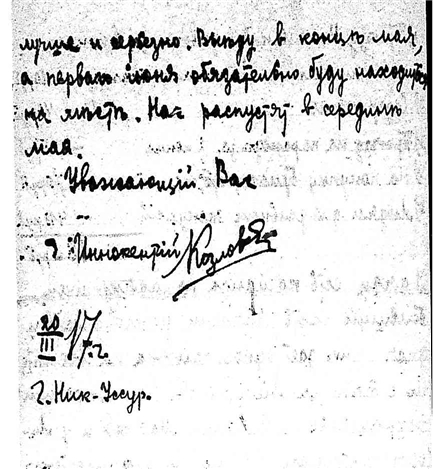 лучше и серьезно. Выѣду в концѣ мая,
а перваго июня обязательно буду находиться
на мѣстѣ. Нас распустят в серединѣ
мая.
Уважающій Вас
Иннокентій Козлов
20/III 17 г.
г. Ник-Уссур.